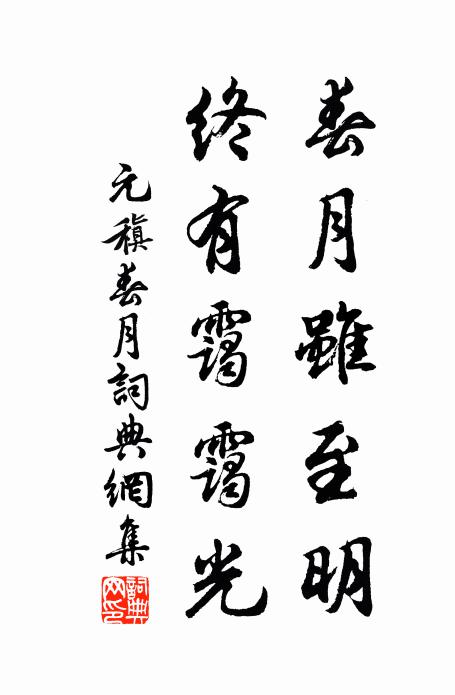 春月雖至明
終有靄靄光
元稹春月詞典網集
詞典网印